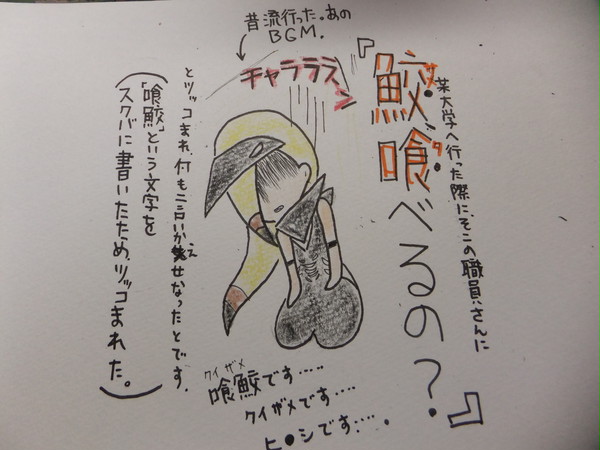 昔流行った。あの
BGM.
チャラララン
某大学へ行った際に、そこの職員さんに
『鮫喰べるの?』
とツッコまれ、何も言いかえせなったとです。
(「喰鮫」という文字を
スクバに書いたため、ツッコまれた。)
クイザメ
喰鮫です.....
クイザメです....
ヒ●シです.....